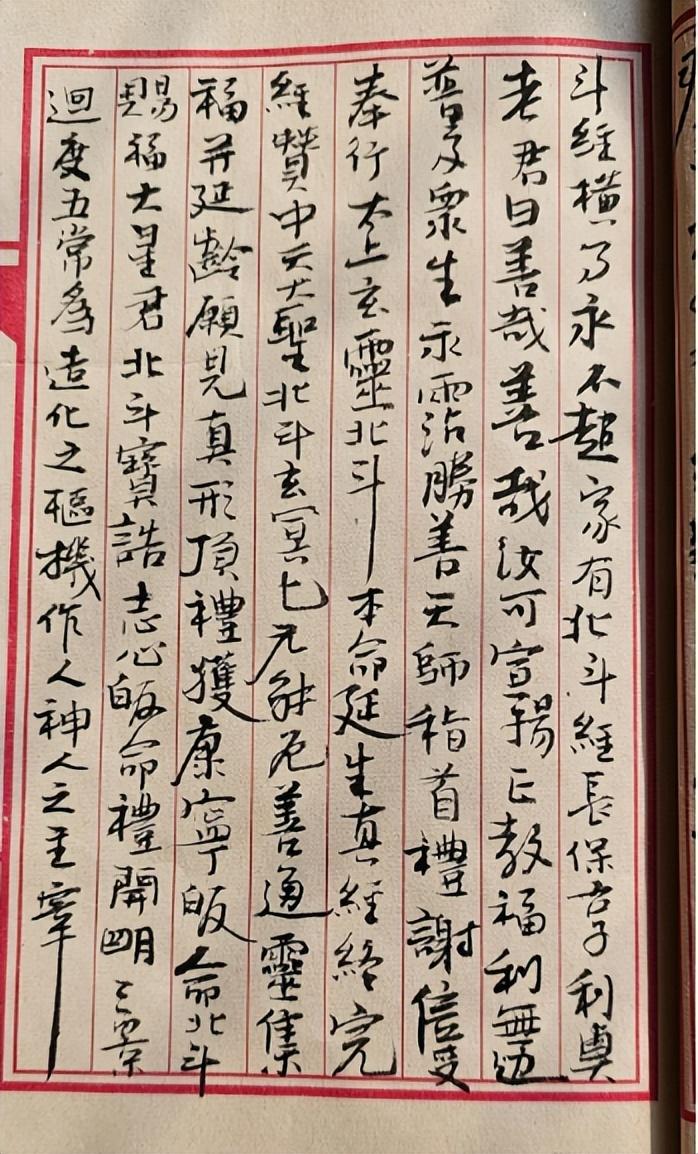 斗經橫事永不起家有北斗經長保亨利貞
老君曰善哉善哉汝可宣揚正教福利無邊
普及眾生永霑勝善天師稽首禮謝信受
奉行太上玄靈北斗本命延生真經終完
經贊中天大聖北斗玄冥七元解厄善通靈集
福并延齡願見真形頂禮獲康寧皈命北斗
賜福大星君北斗寶誥志心皈命禮開明三景
迴度五常為造化之樞機作人神人之主宰